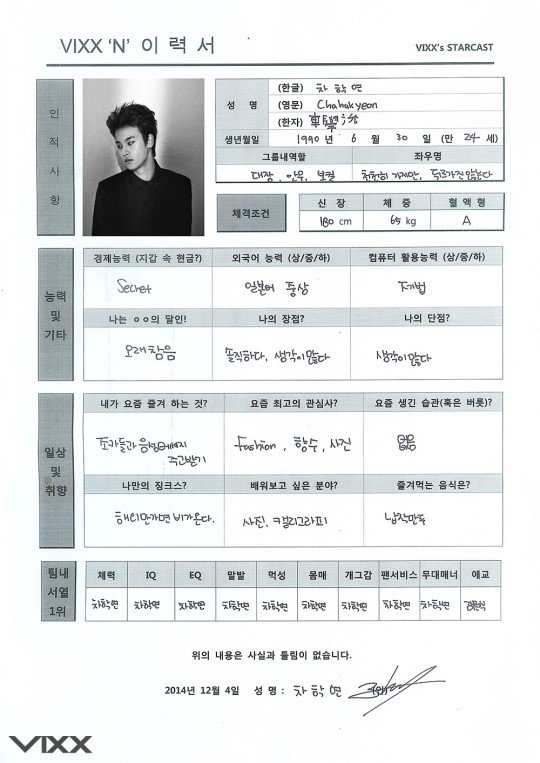 VIXX 'N' 이 력 서
VIXX's STARCAST
인적사항
성 명
(한글) 차 학 연
(영문) Chahakyeon
(한자) 車學沇
생년월일 1990 년 6 월 30 일 (만 24 세)
그룹내역할 좌우명
대장, 안무, 보컬 천천히 가지만, 뒤로가진 않는다
체격조건 신 장 체 중 혈 액 형
180 cm 65 kg A
능력 및 기타
경제능력 (지갑 속 현금?) 외국어 능력 (상/중/하) 컴퓨터 활용능력 (상/중/하)
Secret 일본어 중상 제법
나는 ㅇㅇ의 달인! 나의 장점? 나의 단점?
오래참음 솔직하다, 생각이많다 생각이많다
일상 및 취향
내가 요즘 즐겨 하는 것? 요즘 최고의 관심사? 요즘 생긴 습관(혹은 버릇)?
조카들과 음성메세지 주고받기 fashion, 향수, 사진 없음
나만의 징크스? 배워보고 싶은 분야? 즐겨먹는 음식은?
해외만가면 비가온다. 사진, 캘리그라피 납작만두
팀내 서열 1위
체력 IQ EQ 말발 먹성 몸매 개그감 팬서비스 무대매너 애교
차학연 차학연 차학연 차학연 차학연 차학연 차학연 차학연 차학연 김원식
위의 내용은 사실과 틀림이 없습니다.
2014년 12월 4일 성 명 : 차 학 연
VIXX